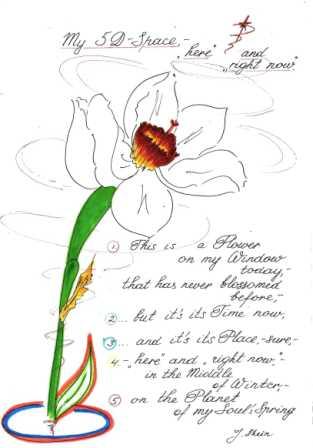 My 5D-Space,-
„here" and
„right now"
1 This is a Flower
on my Window
today,
that has never blossomed
before,-
2 ... but it's its Time now,
3 ... and it's its Place,-sure,-
4 - „here" and „right now",-
in the Middle
of Winter,-
5 on the Planet
of my Soul;Spring